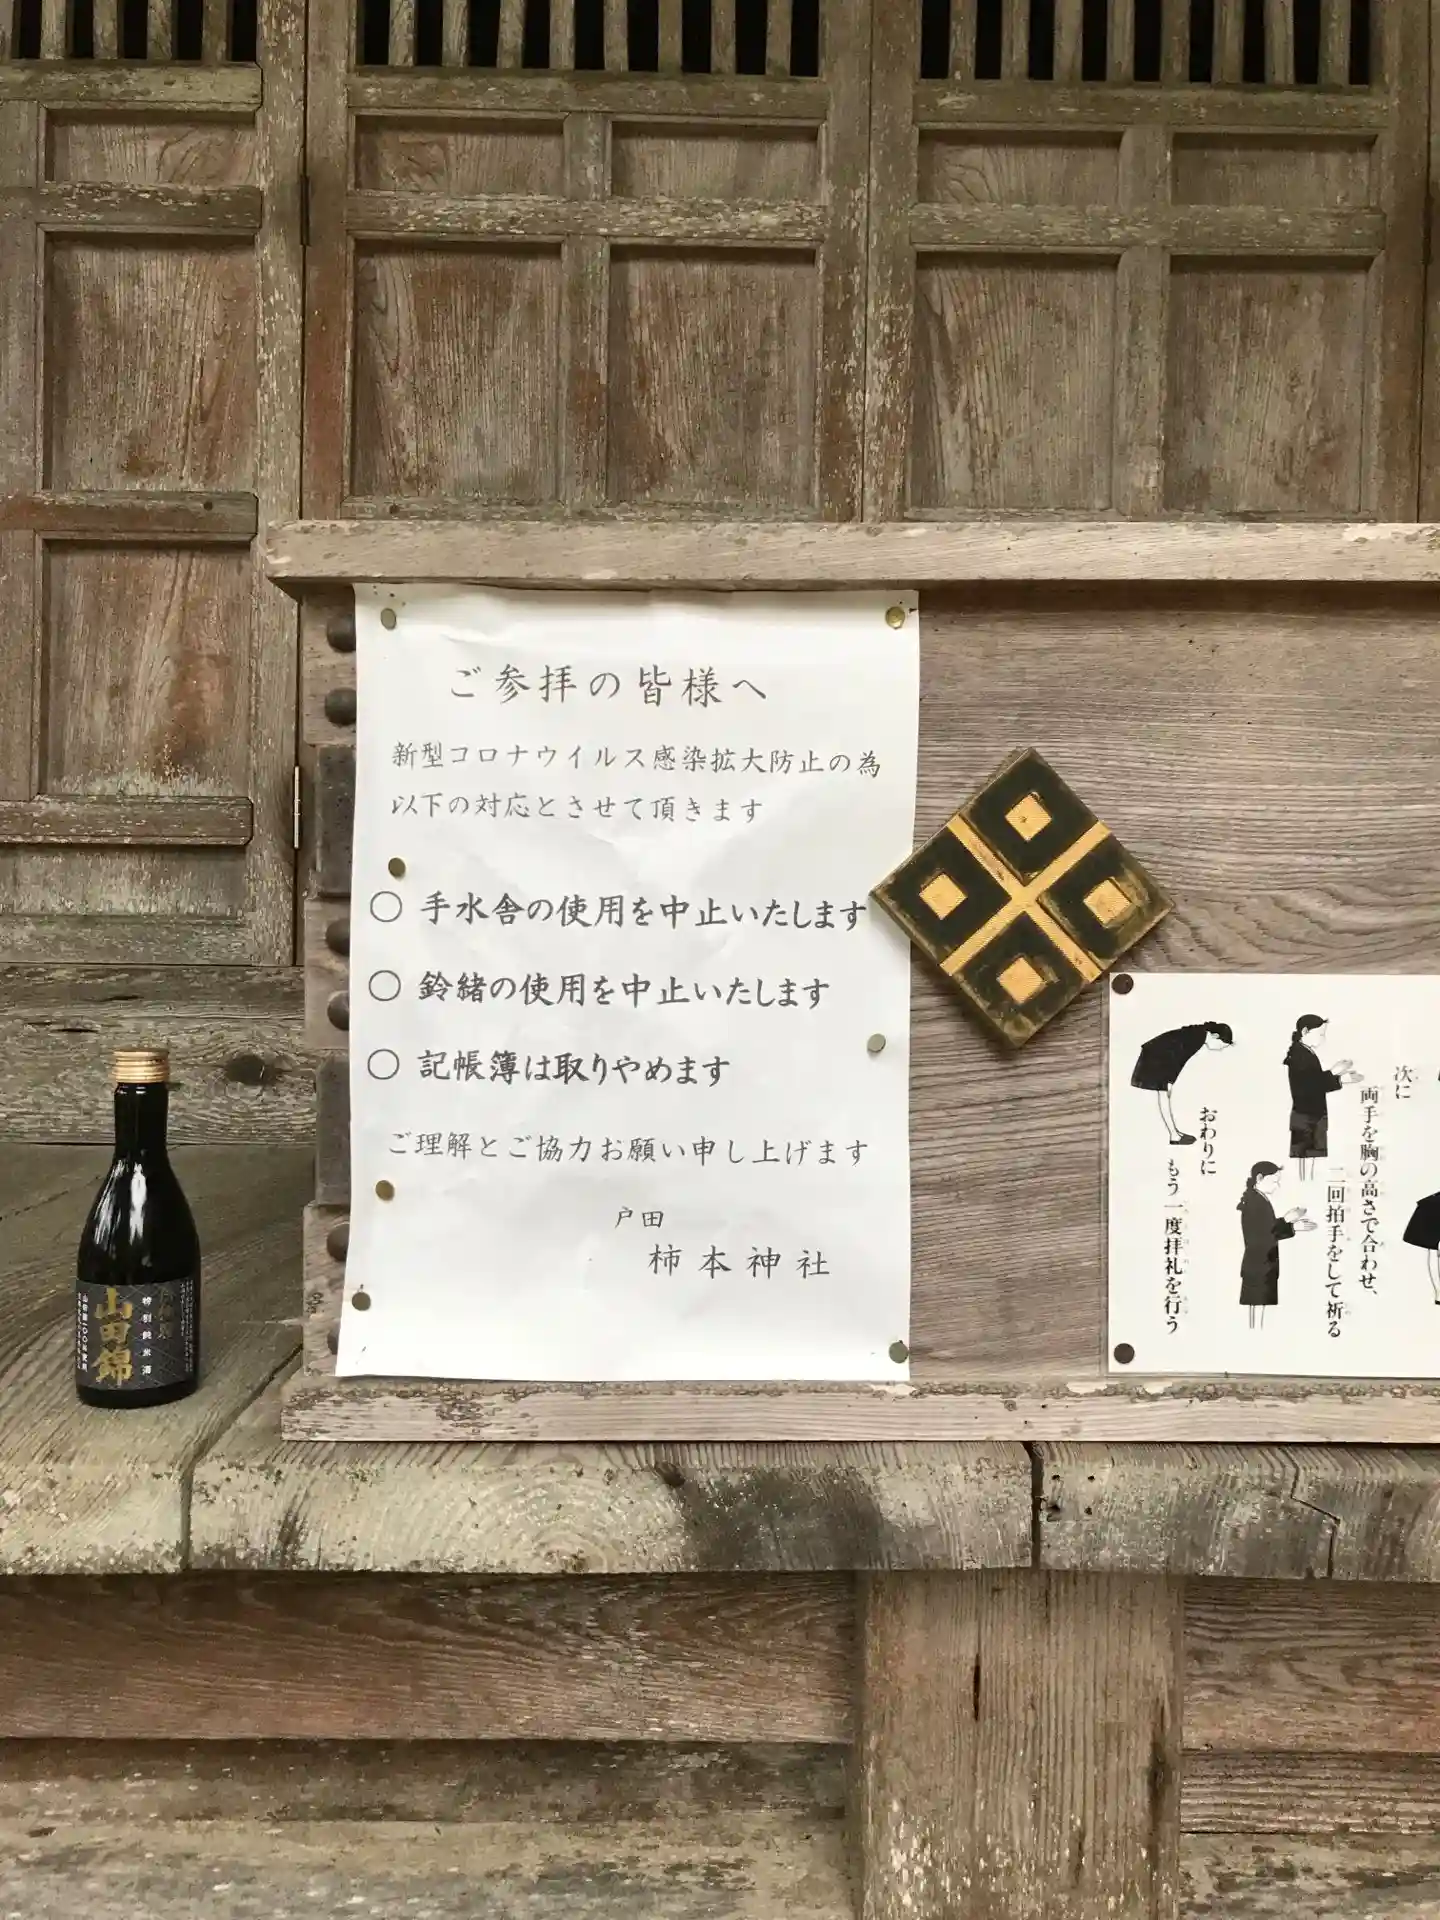 ご参拝の皆様へ
新型コロナウイルス感染拡大防止の為
以下の対応とさせて頂きます
○ 手水舎の使用を中止いたします
○ 鈴緒の使用を中止いたします
○ 記帳簿は取りやめます
ご理解とご協力お願い申し上げます
戸田
柿本神社
次に
両手を胸の高さで合わせ、
二回拍手をして祈る
おわりに
もう一度拝礼を行う
特別純米酒
山田錦
山田錦一〇〇%使用